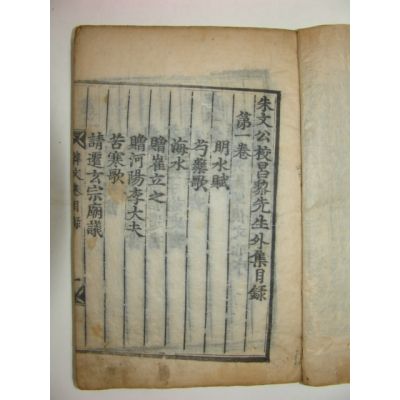 朱文公校昌黎先生外集目録
第一卷
明水賦
芍藥歌
海水
贈崔立之
贈河陽李大夫
苦寒歌
請遷玄宗廟議
韓文外目録